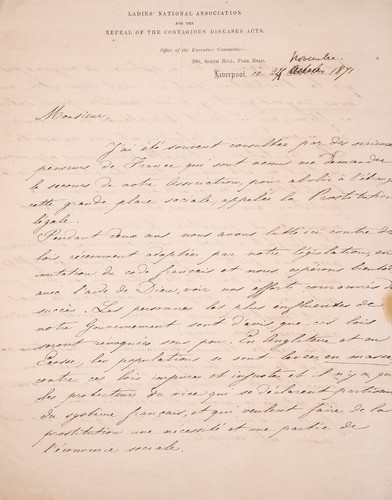 LADIES' NATIONAL ASSOCIATION
FOR THE
REPEAL OF THE CONTAGIOUS DISEASES ACTS.
Office of the Executive Committee—
280, SOUTH HILL, PARK ROAD,
Novembre
Liverpool, ce 27 Octobre 1871
Monsieur,
J'ai été souvent consultée par des sérieux
penseurs de France qui sont venus me demander
le secours de notre Association, pour abolir à l'étranger
cette grande plaie sociale, appelée la Prostitution
légale.
Pendant deux ans nous avons lutté ici contre des
lois récemment adoptées par notre législation, en
imitation du code français et nous espérons bientôt
avec l'aide de Dieu, voir nos efforts couronnés de
succès. Les personnes les plus influentes de
notre Gouvernement sont d'avis que ces lois
seront revoquées sous peu. En Angleterre et en
Ecosse, les populations se sont levées en masse
contre ces lois impures et injustes et il n'y a que
les protecteurs du vice qui se déclarent partisans
du système français, et qui veulent faire de la
prostitution une nécessité et une partie de
l'économie sociale.